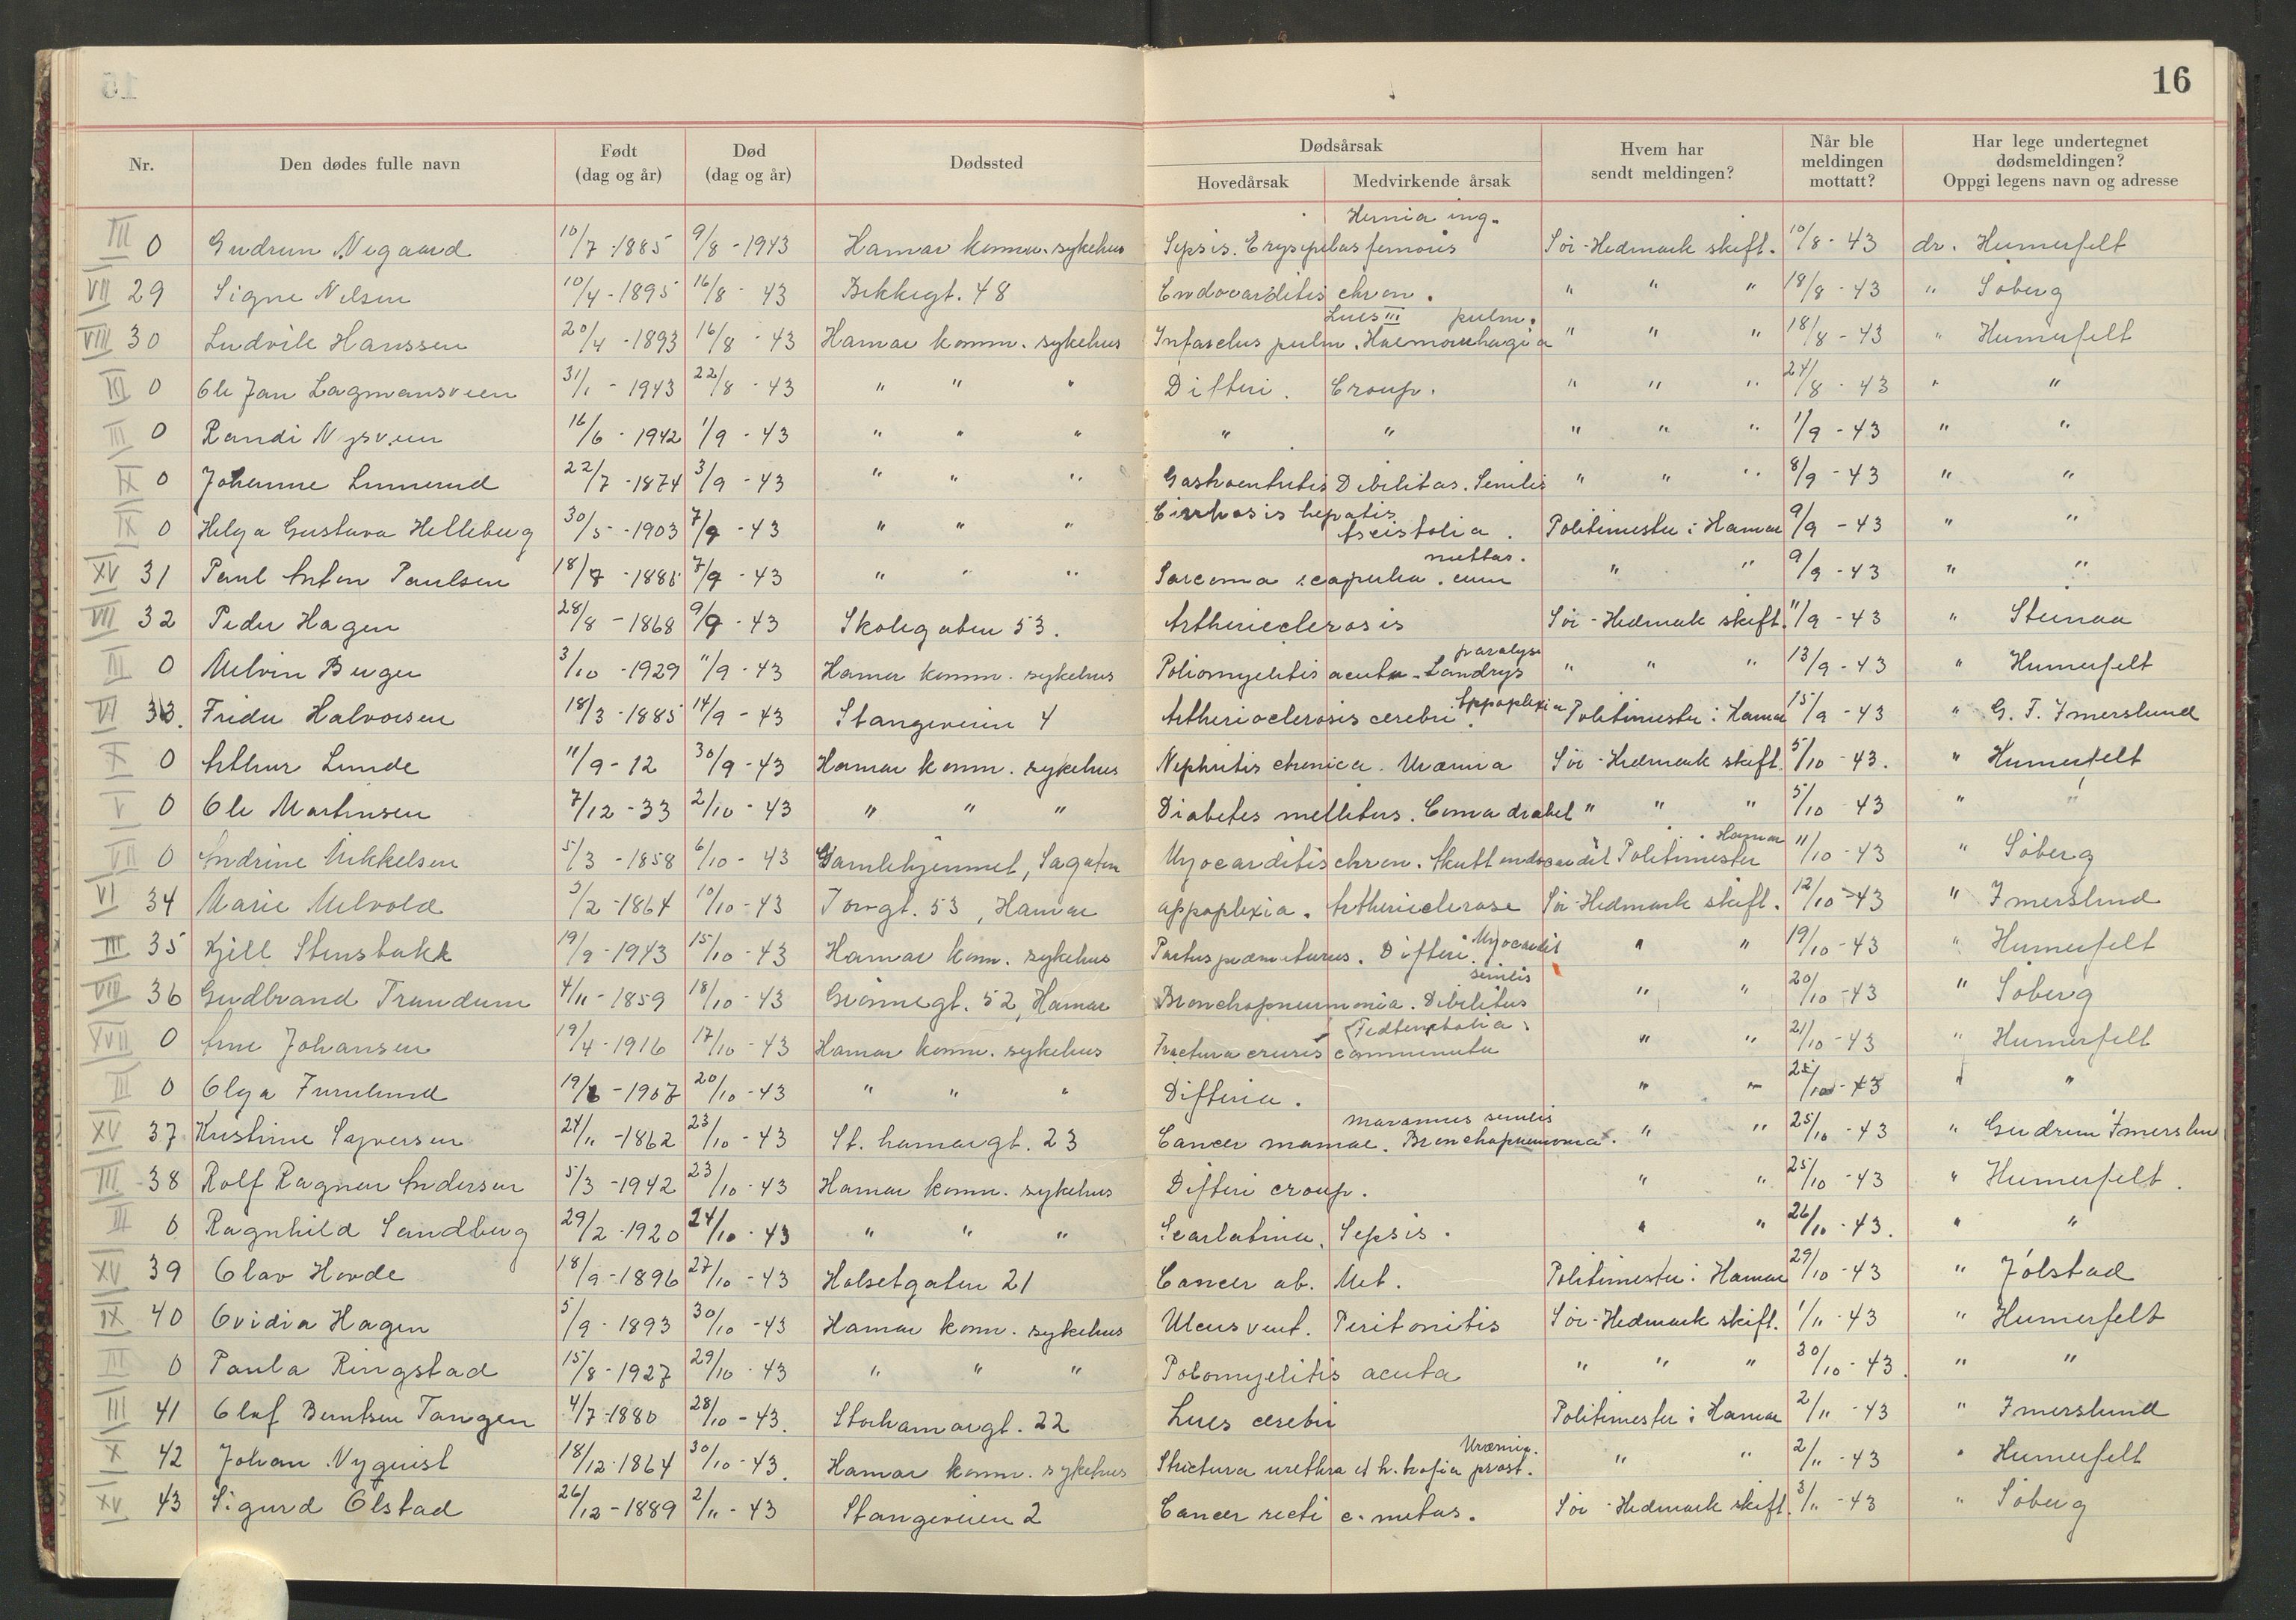 16
Nr. Den dødes fulle navn Født (dag og år) Død (dag og år) Dødssted Dødsårsak Hovedårsak Medvirkende årsak Hvem har sendt meldingen? Når ble meldingen mottatt? Har lege undertegnet dødsmeldingen? Oppgi legens navn og adresse
III 0 Gudrun Nygaard 10/7-1885 9/8-1943 Hamar komm. sykehus Sepsis. Erysipelas femoris Hernia ing. Sør-Hedmark skift. 10/8-43 dr. Humerfelt
VII 29 Signe Nilsen 10/4-1895 16/8-43 Bekkegt. 48 Endocarditis chron. " " " 18/8-43 " Søberg
VIII 30 Ludvik Hanssen 20/4-1893 16/8-43 Hamar komm. sykehus Infarctus pulm. Lues III Haemorrhagia pulm. " " " 18/8-43 " Humerfelt
III 0 Ole Jan Lagmansveen 31/1-1943 22/8-43 " " " Difteri. Croup. " " " 24/8-43 " "
III 0 Randi Nysveen 16/6-1942 1/9-43 " " " " " " " " 1/9-43 " "
IX 0 Johanne Linnerud 22/7-1874 3/9-43 " " " Gastroentritis Debilitas. Senilis " " " 8/9-43 " "
IX 0 Helga Gustava Helleberg 30/5-1903 7/9-43 " " " Cirrhosis hepatis Politimester i Hamar 9/9-43 " "
XV 31 Paul Anton Paulsen 7/9-43 " " " Sarcoma scapula. cum mettas. " " 9/9-43 " "
VII 32 Peder Hagen 28/8-1868 9/9-43 Skolegaten 53. Artherieclerosis Sør-Hedmark skift. 11/9-43 " Steinaa
III 0 Melvin Berger 3/10-1929 11/9-43 Hamar komm. sykehus Poliomyelitis acuta-Landrys paralyse " " " 13/9-43 " Humerfelt
VI 33. Frida Halvorsen 18/3-1885 14/9-43 Stangeveien 4 Artherioclerosis cerebri. Appoplexia Politimester i Hamar 15/9-43 " G. F. Imerslund
X 0 Arthur Lunde 11/9-12 30/9-43 Hamar komm. sykehus Nephritis chronica. Uræmia Sør-Hedmark skift. 5/10-43. " Humerfelt
V 0 Ole Martinsen 7/12-33 2/10-43 " " " Diabetes mellitus. Coma diabet " " " 5/10 43 " "
VII 0 Andrine Mikkelsen 5/3-1858 6/10-43 Gamlehjemmet, Sagaten Myocarditis chron. Akutt endocardit Politimester i Hamar 11/10-43 " Søberg
VI 34 Marie Melvold 3/2-1864 10/10-43 Torvgt. 53, Hamar appoplexia. Artherieclerose Sør-Hedmark skift. 12/10-43 " Imerslund
III 35 Kjell Stensbakk 19/9-1943 15/10-43 Hamar komm. sykehus Partus præmaturus. Difteri. Myocardit " " 19/10-43 " Humerfelt
VIII 36 Gudbrand Trandum 4/11-1859 18/10-43 Grønnegt. 52, Hamar Bronchopneumonia. Debilitas senilis " " 20/10-43 " Søberg
XVII 0 Arne Johansen 19/4-1916 17/10-43 Hamar komm. sykehus Fractura cruris comminuta " " 21/10-43 " Humerfelt
III 0 Olga Furulund 20/10-43 " " " Difteria. " " 10-43 " "
XV 37 Kristine Syversen 24/11-1862 23/10-43 St. hamargt. 23 Cancer mamae. Marasmus senilis Bronchopneumonia. " " 25/10-43 " Gudrun Imerslun
III 38 Rolf Ragnar Andersen 5/3-1942 23/10-43 Hamar komm. sykehus Difteri croup. " " 25/10-43 " Humerfelt.
III 0 Ragnhild Sandberg 29/2-1920 24/10-43 " " " Scarlatina. Sepsis. " " 26/10-43. " "
XV 39 Olav Hovde 18/9-1896 27/10-43 Holsetgaten 21 Cancer ab. Met. Politimester i Hamar 29/10-43 " Jølstad
IX 40 Ovidia Hagen 5/9-1893 30/10-43 Hamar komm. sykehus Ulcus vent. Peritonitis Sør-Hedmark skift. 1/11-43 " Humerfelt
III 0 Paula Ringstad 15/8-1927 29/10-43 " " " Polomyelitis acuta " " " 30/10-43. " "
III 41 Olaf Berntsen Tangen 4/7-1880 28/10-43. Storhamargt. 22 Lues cerebri Politimester i Hamar 2/11-43 " Imerslund
X 42 Johan Nyquist 18/12-1864 30/10-43. Hamar komm. sykehus Strictura urethra et h. trofia prost. Uræmia. " " 2/11-43 " Humerfelt
XV 43 Sigurd Olstad 26/12-1889 2/11-43 Stangeveien 2 Cancer recti c. metas. Sør-Hedmark skift. 3/11-43 " Søberg